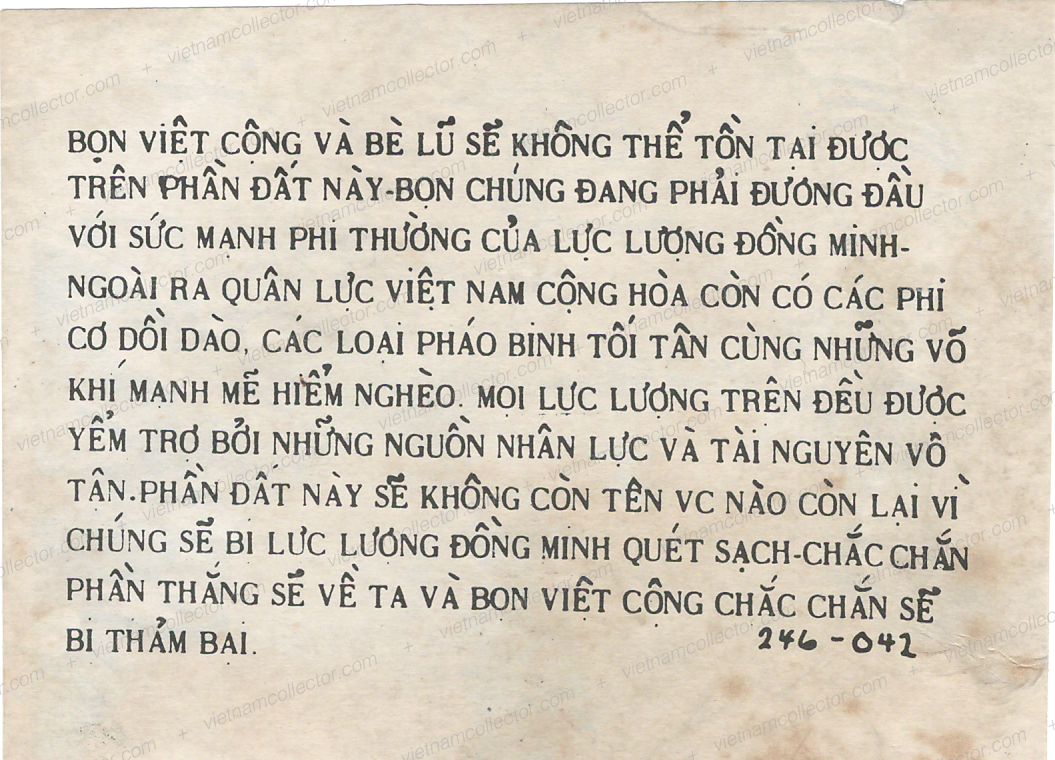 BỌN VIỆT CỘNG VÀ BÈ LŨ SẼ KHÔNG THỂ TỒN TẠI ĐƯỢC
TRÊN PHẦN ĐẤT NÀY-BỌN CHÚNG ĐANG PHẢI ĐƯƠNG ĐẦU
VỚI SỨC MẠNH PHI THƯỜNG CỦA LỰC LƯỢNG ĐỒNG MINH-
NGOÀI RA QUÂN LƯC VIỆT NAM CỘNG HÒA CÒN CÓ CÁC PHI
CƠ DỒI DÀO, CÁC LOẠI PHÁO BINH TỐI TÂN CÙNG NHỮNG VÕ
KHÍ MẠNH MẼ HIỂM NGHÈO. MỌI LỰC LƯỢNG TRÊN ĐỀU ĐƯỢC
YỂM TRỢ BỞI NHỮNG NGUỒN NHÂN LỰC VÀ TÀI NGUYÊN VÔ
TẬN.PHẦN ĐẤT NÀY SẼ KHÔNG CÒN TÊN VC NÀO CÒN LẠI VÌ
CHÚNG SẼ BI LƯC LƯƠNG ĐỒNG MINH QUÉT SẠCH-CHẮC CHẮN
PHẦN THẮNG SẼ VỀ TA VÀ BỌN VIỆT CÔNG CHẮC CHẮN SẼ
BI THẢM BẠI.
246-042
vietnamcollector.com